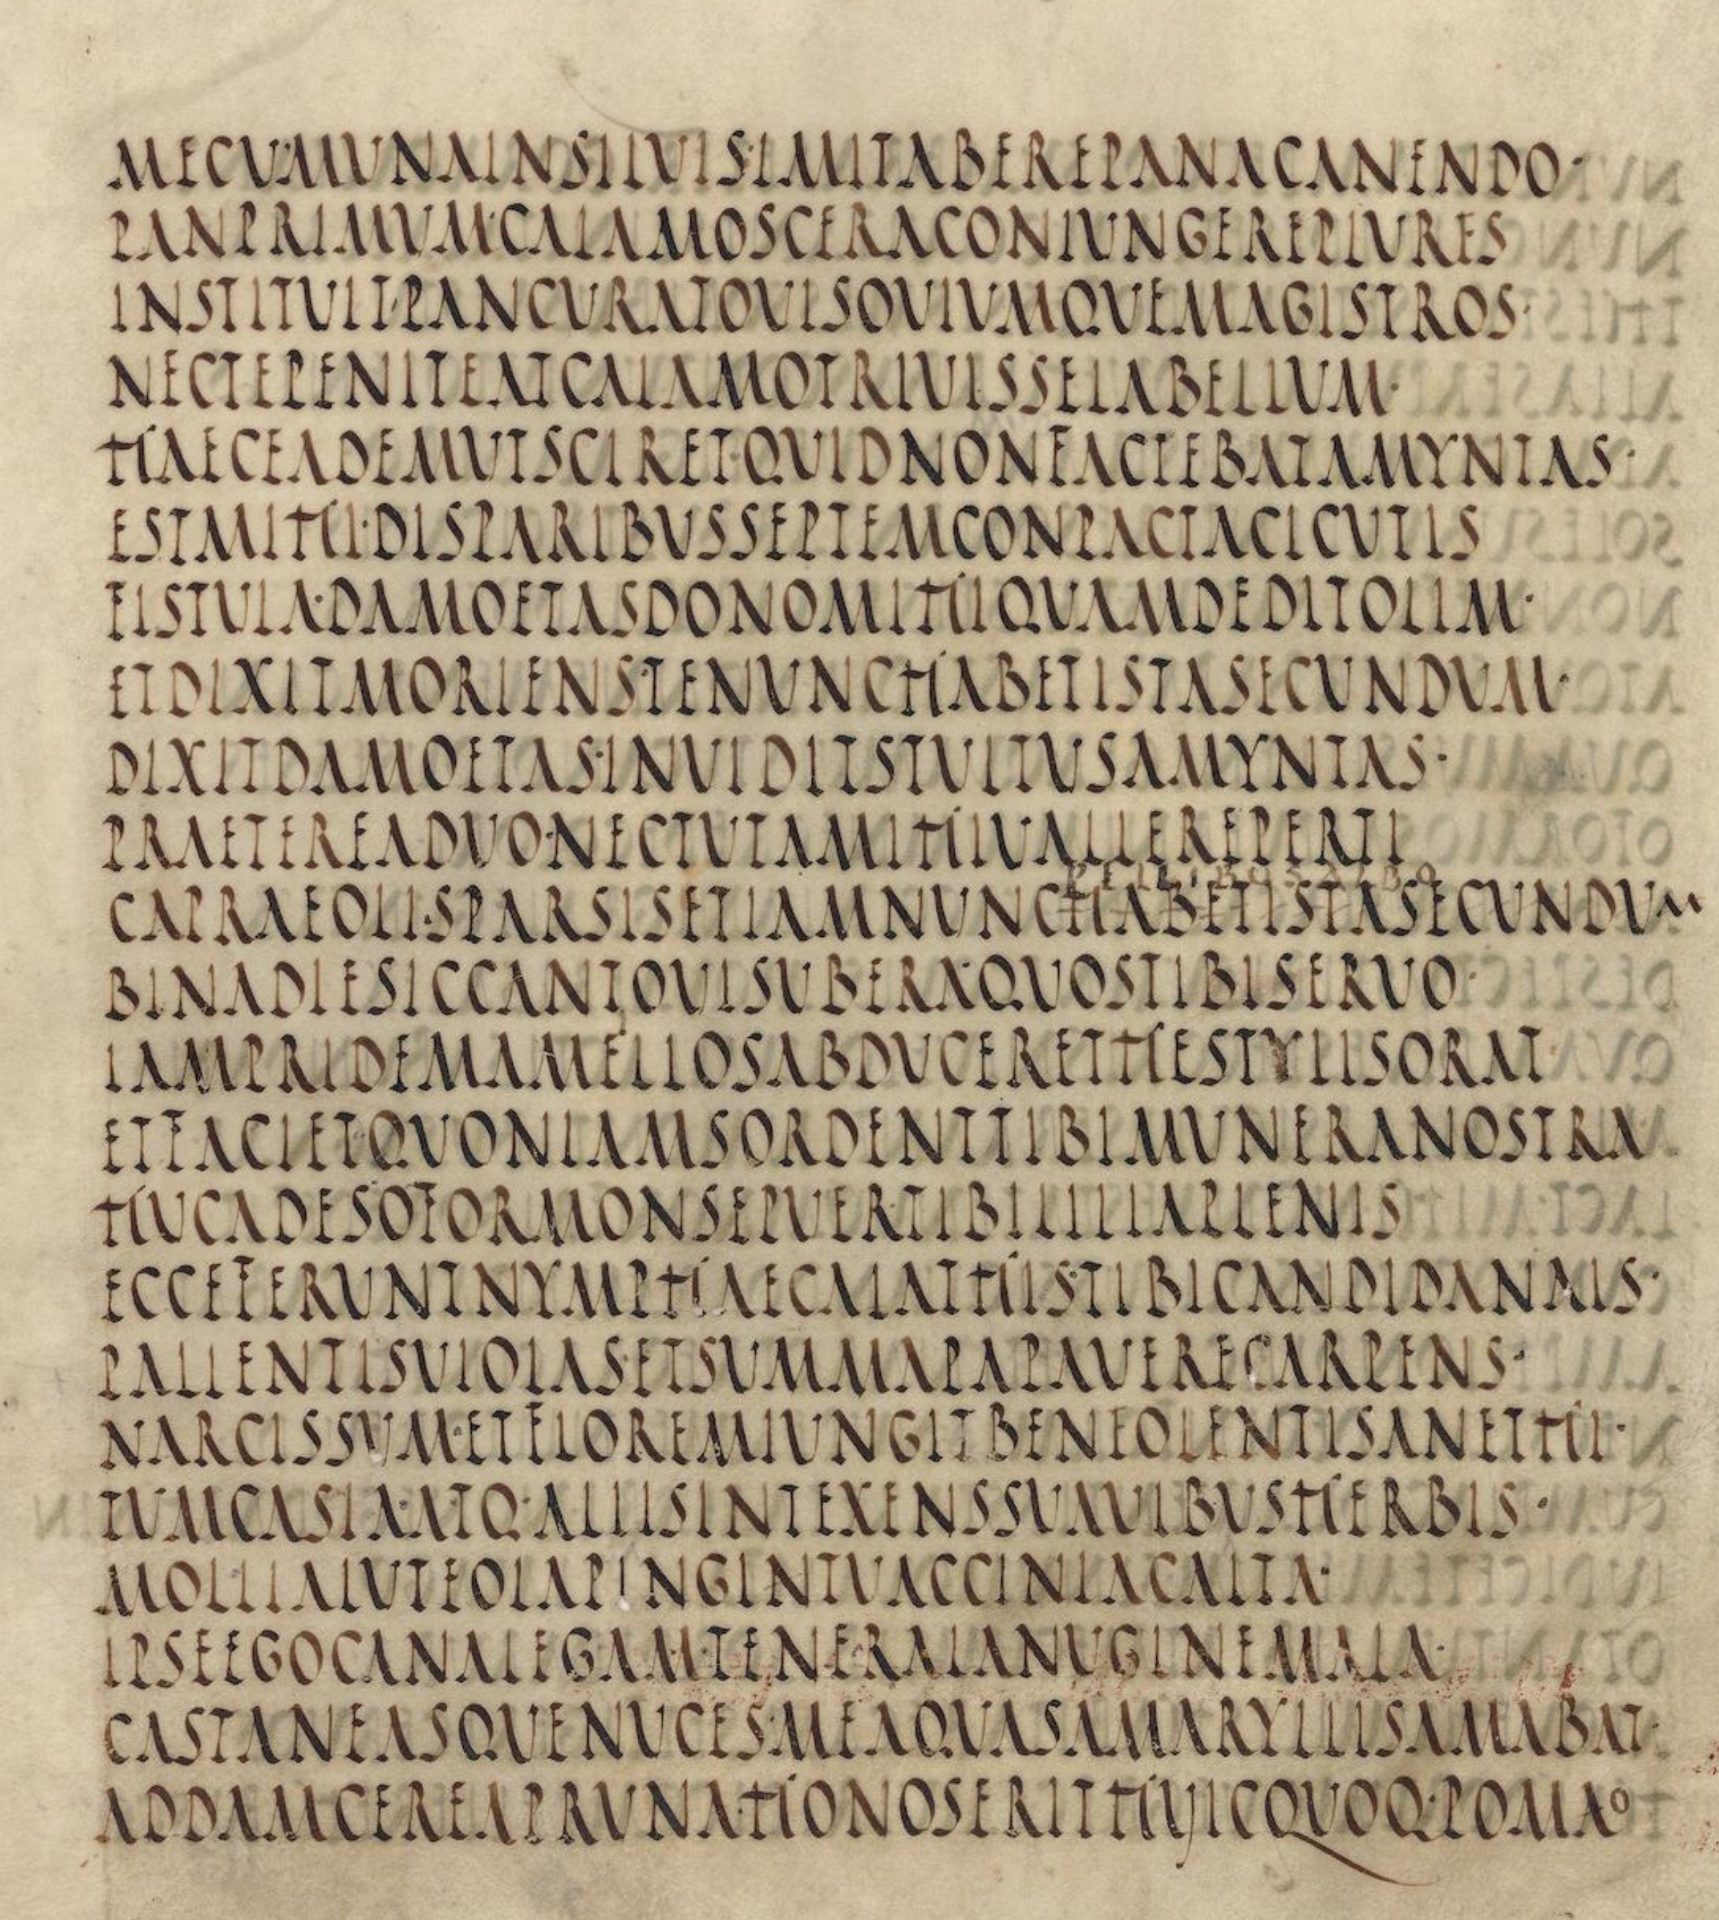 MECUM·UNAINSILUIS·IMITABEREPANACANENDO·
PANPRIMUM·CALAMOSCERACONIUNGEREPLURES
INSTITUIT·PANCURATOUISOUIUMQUEMAGISTROS·
NECTEPENITEATCALAMOTRIUISSELABELLUM·
HAECEADEMUTSCIRET·QUIDNONFACIEBATAMYNTAS·
ESTMIHI·DISPARIBUSSEPTEMCONPACTACICUTIS
FISTULA·DAMOETASDONOMIHIQUAMDEDITOLIM·
ETDIXITMORIENS·TENUNCHABETISTASECUNDUM·
DIXITDAMOETAS·INUIDITSTULTUSAMYNTAS·
PRAETEREADUO·NECTUTAMIHIUALLEREPERTI
PELLIBUSALBO
CAPRAEOLI·SPARSISETIAMNUNCHABETISTASECUNDUM
BINADIESICCANTOUISUBERA·QUOSTIBISERUO·
IAMPRIDEMAMELLOSABDUCERETHESTYLISORAT
ETFACIET·QUONIAMSORDENTTIBIMUNERANOSTRA·
HUCADESOFORMONSEPUER·TIBILILIAPLENIS
ECCEFERUNTNYMPHAECALATHIS·TIBICANDIDANAIS·
PALLENTISUIOLAS·ETSUMMAPAPAUERECARPENS·
NARCISSUM·ETFLOREMIUNGITBENEOLENTISANETHI·
TUMCASIA·ATQ·ALIISINTEXENSSUAUIBUSHERBIS·
MOLLIALUTEOLAPINGINTUACCINIACALTA·
IPSEEGOCANALEGAM·TENERALANUGINEMALA·
CASTANEASQUENUCES·MEAQUASAMARYLLISAMABAT·
ADDAMCEREAPRUNA·HONOSERITHUICQUOQ·POMAO